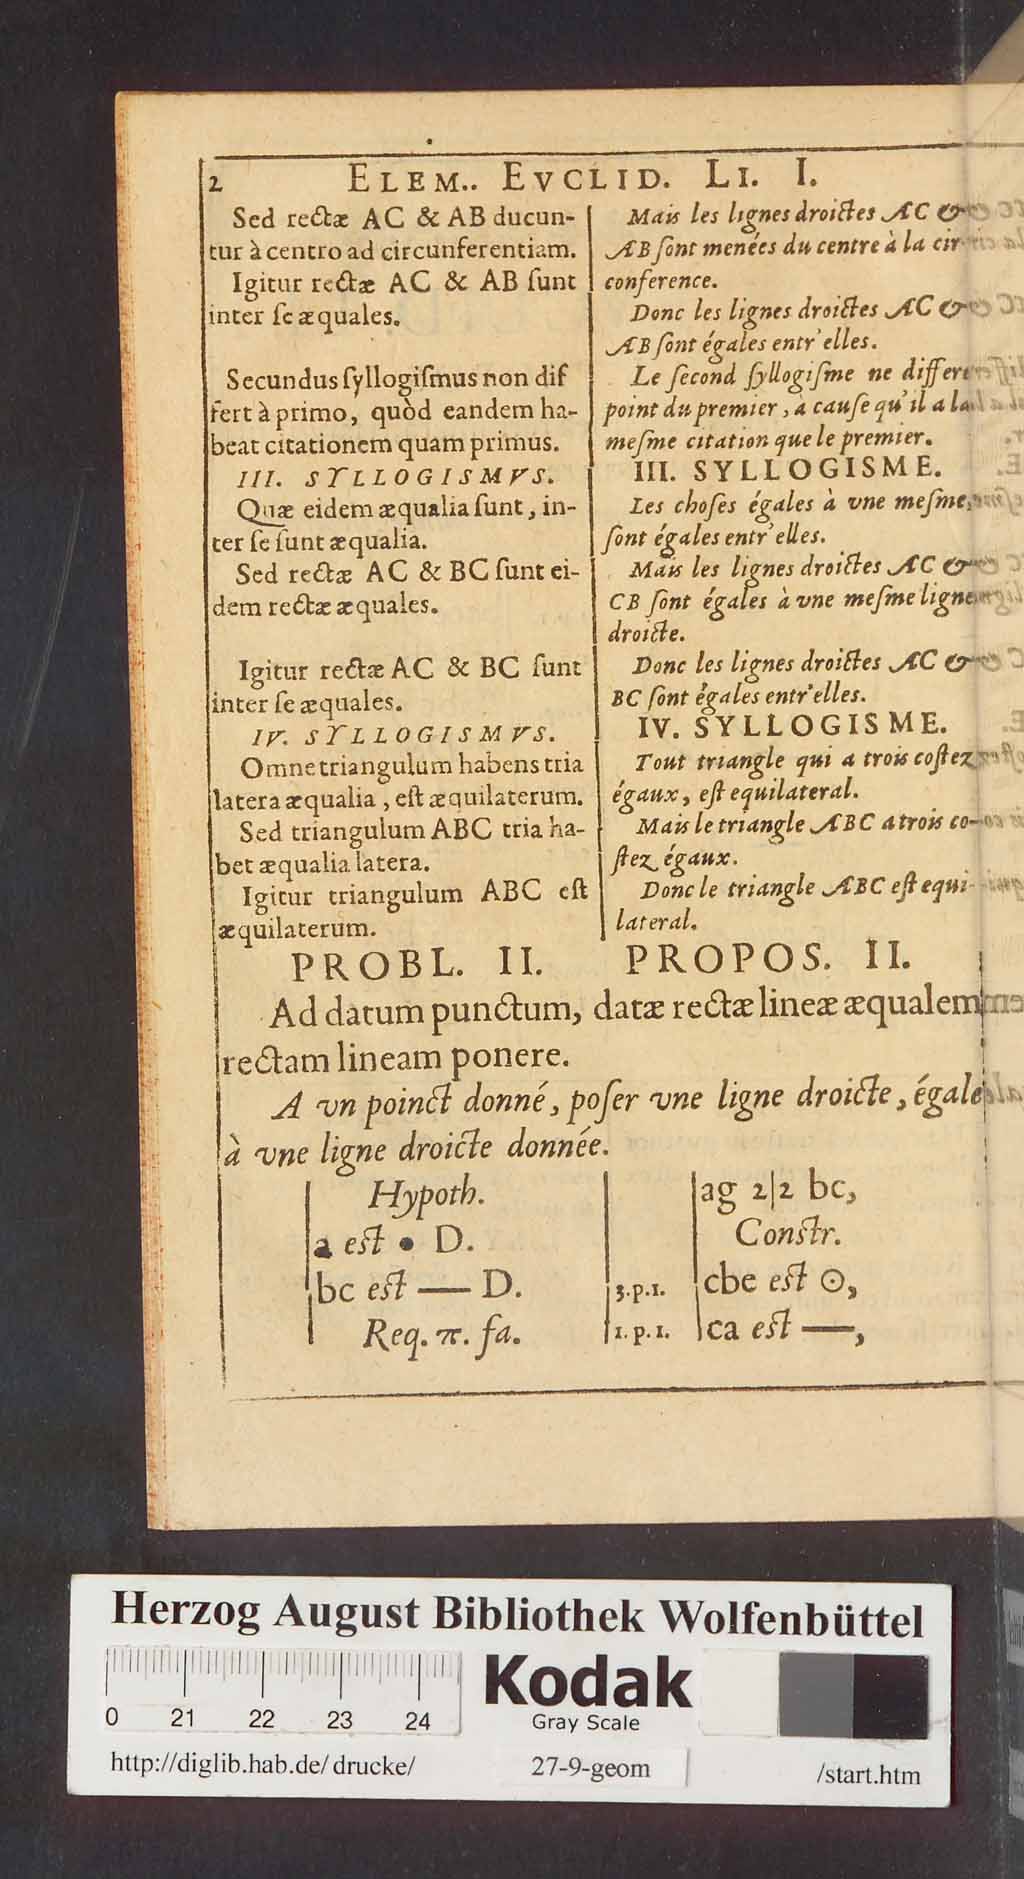 2 ELEM.. EVCLID. LI. I.
Sed rectæ AC & AB ducun-
tur à centro ad circunferentiam.
Igitur rectæ AC & AB ſunt
inter ſe æquales.
Secundus ſyllogiſmus non dif
fert à primo, quòd eandem ha-
beat citationem quam primus.
III. SYLLOGISMVS.
Quæ eidem æqualia ſunt, in-
ter ſe ſunt æqualia.
Sed rectæ AC & BC ſunt ei-
dem rectæ æquales.
Igitur rectæ AC & BC ſunt
inter ſe æquales.
IV. SYLLOGISMVS.
Omne triangulum habens tria
latera æqualia, eſt æquilaterum.
Sed triangulum ABC tria ha-
bet æqualia latera.
Igitur triangulum ABC eſt
æquilaterum.
Mais les lignes droictes AC &
AB ſont menées du centre à la cir
conference.
Donc les lignes droictes AC &
AB ſont égales entr'elles.
Le ſecond ſyllogiſme ne differe
point du premier, à cauſe qu'il a la
meſme citation que le premier.
III. SYLLOGISME.
Les choſes égales à vne meſme,
ſont égales entr'elles.
Mais les lignes droictes AC &
CB ſont égales à vne meſme ligne
droicte.
Donc les lignes droictes AC &
BC ſont égales entr'elles.
IV. SYLLOGISME.
Tout triangle qui a trois coſtez
égaux, eſt equilateral.
Mais le triangle ABC a trois co-
ſtez égaux.
Donc le triangle ABC eſt equi-
lateral.
PROBL. II. PROPOS. II.
Ad datum punctum, datæ rectæ lineæ æqualem
rectam lineam ponere.
A vn poinct donné, poſer vne ligne droicte, égale
à vne ligne droicte donnée.
Hypoth.
a eſt • D.
bc eſt — D.
Req. π. fa.
ag 2|2 bc,
Conſtr.
3.p.1. cbe eſt ⊙,
1.p.1. ca eſt —,
Herzog August Bibliothek Wolfenbüttel
0 21 22 23 24
Kodak
Gray Scale
http://diglib.hab.de/drucke/ 27-9-geom /start.htm